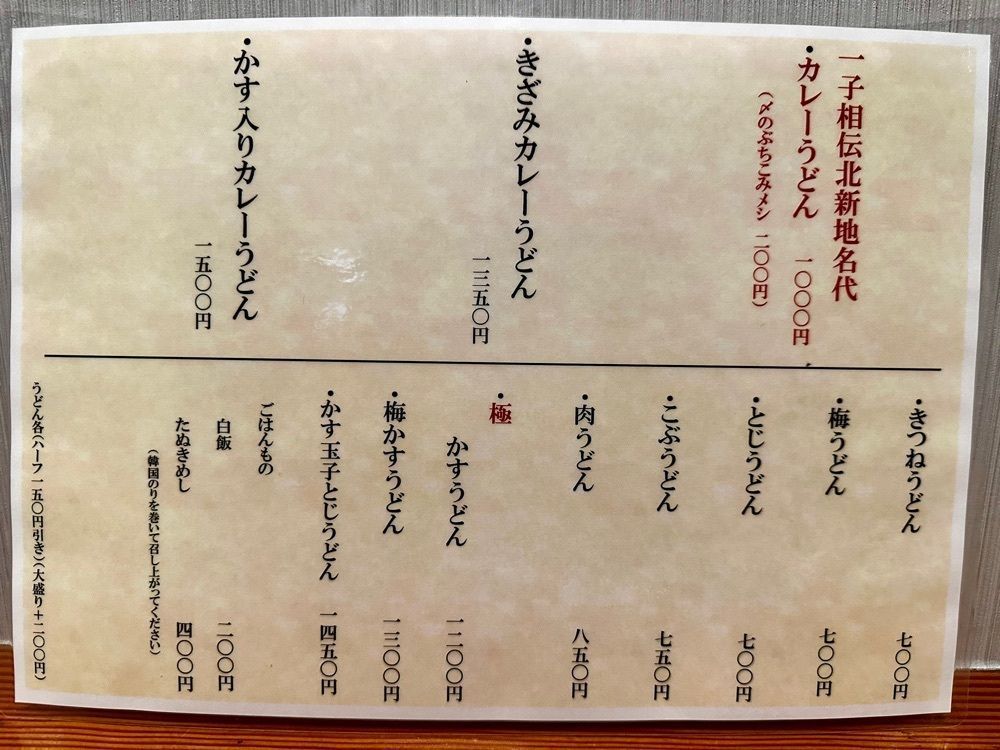 一子相伝北新地名代
・カレーうどん 一〇〇〇円
（〆のぶちこみメシ 二〇〇円）
・きざみカレーうどん
一三五〇円
・かす入りカレーうどん
一五〇〇円
・きつねうどん 七〇〇円
・梅うどん 七〇〇円
・とじうどん 七〇〇円
・こぶうどん 七五〇円
・肉うどん 八五〇円
・極
かすうどん 一二〇〇円
・梅かすうどん 一三〇〇円
・かす玉子とじうどん 一四五〇円
ごはんもの
白飯 二〇〇円
たぬきめし 四〇〇円
（韓国のりを巻いて召し上がってください）
うどん各（ハーフ一五〇円引き）（大盛り＋二〇〇円）